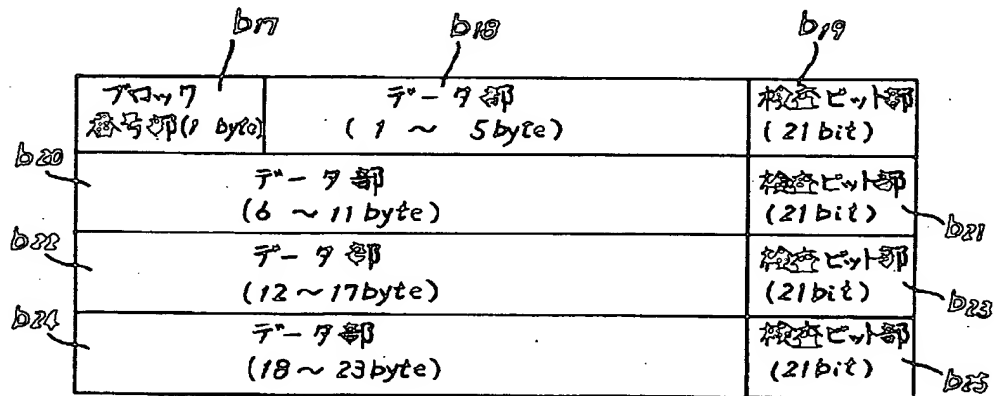 b17 b18 b19
ブロック
番号部(1 byte)
データ部
(1 ~ 5byte)
検査ビット部
(21bit)
b20
データ部
(6 ~ 11byte)
検査ビット部
(21bit)
b21
b22
データ部
(12~17byte)
検査ビット部
(21bit)
b23
b24
データ部
(18 ~ 23byte)
検査ビット部
(21bit)
b25